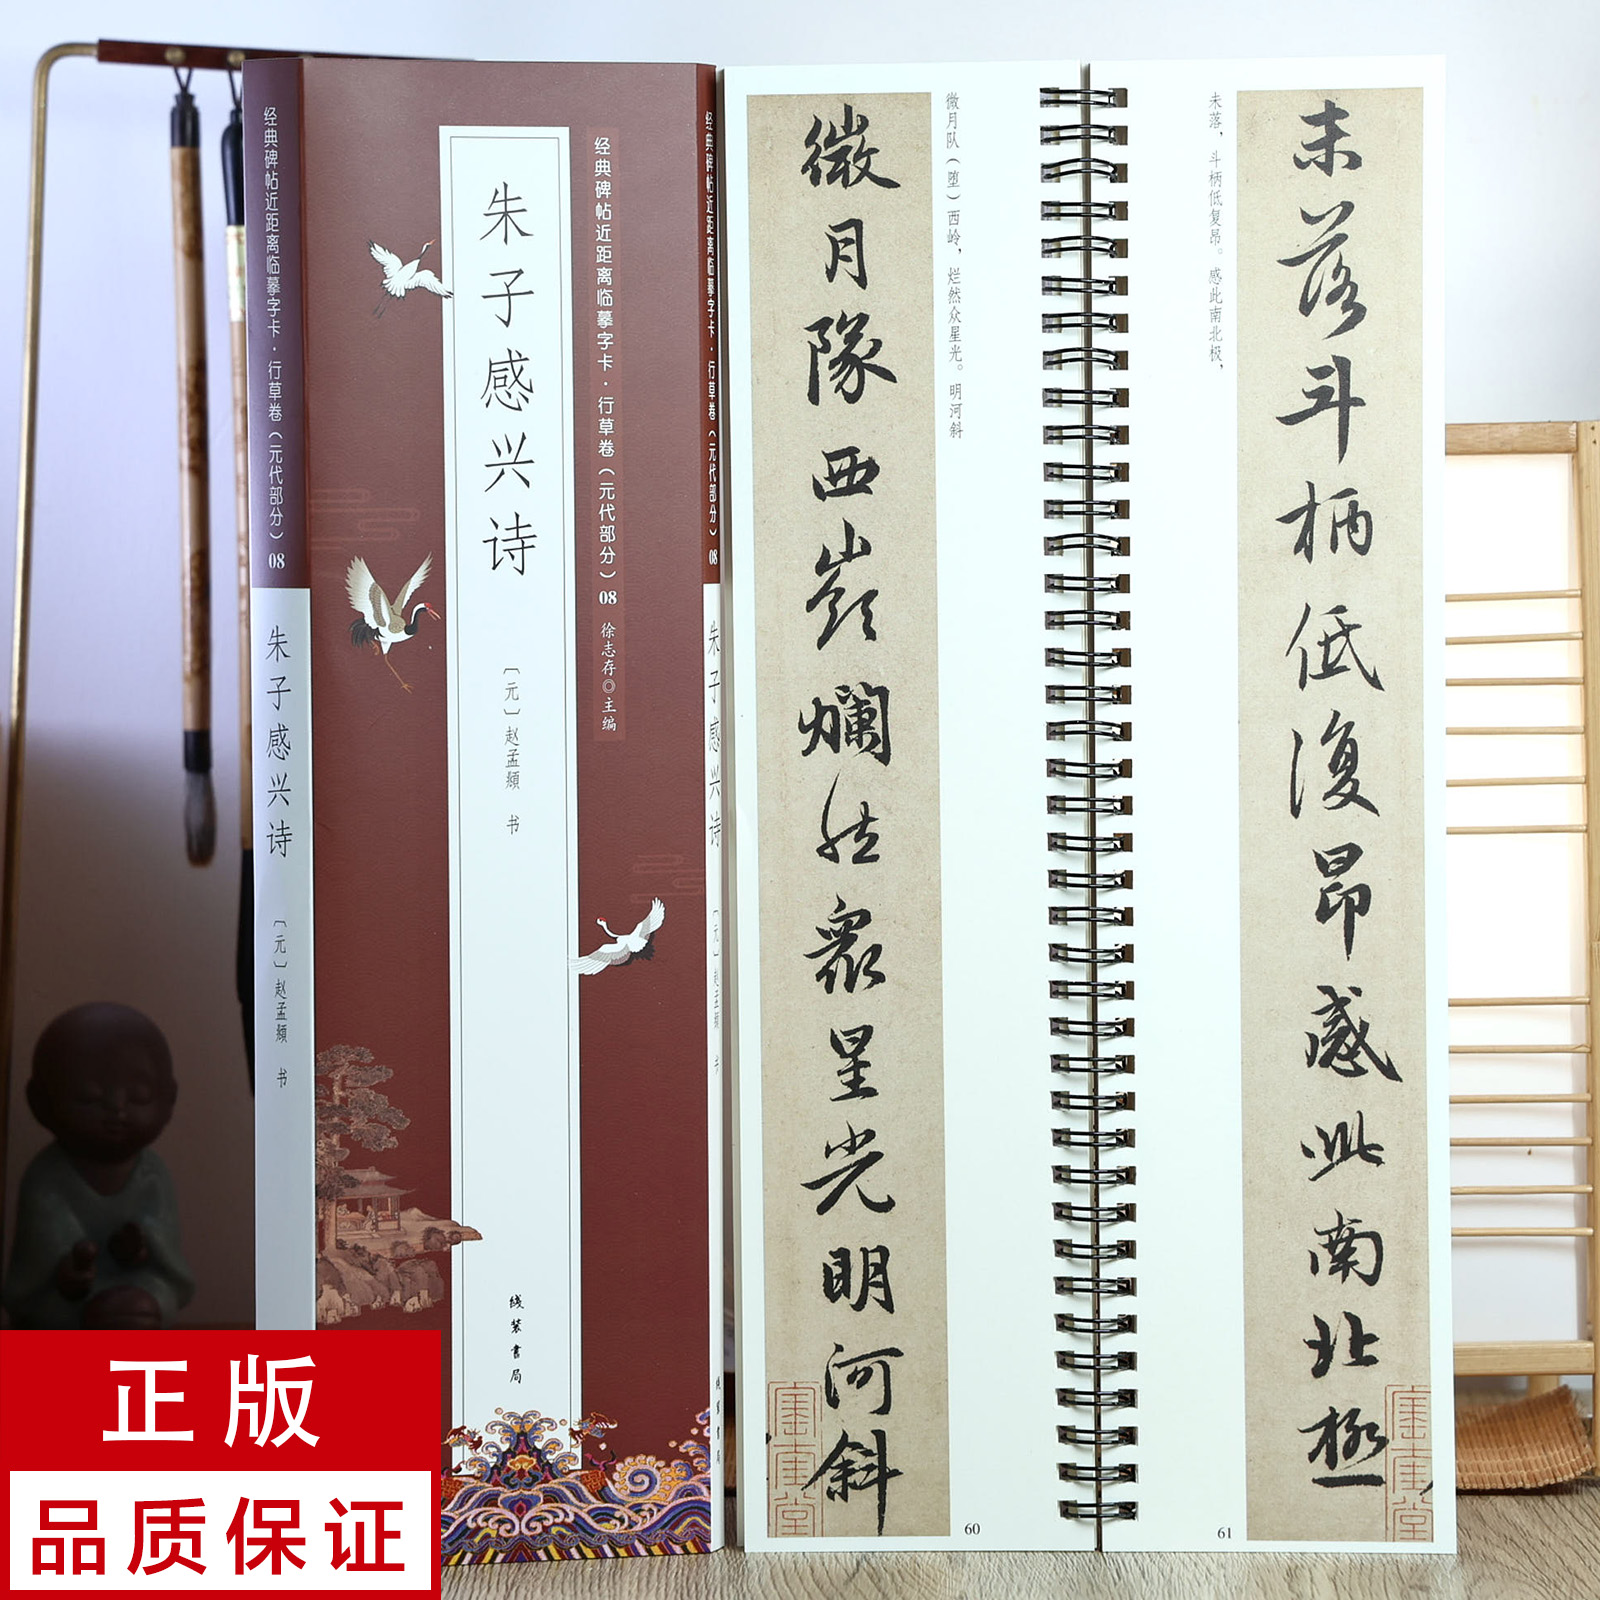 经典碑帖近距离临摹字卡·行草卷（元代部分）08
朱子感兴诗
〔元〕赵孟頫 书
经典碑帖近距离临摹字卡·行草卷（元代部分）08 徐志存◎主编
朱子感兴诗
〔元〕赵孟頫 书
线装书局
经典碑帖近距离临摹字卡·行草卷（元代部分）08
朱子感兴诗
〔元〕赵孟頫 书
线装书局
微月队（堕）西岭，烂然众星光。明河斜
微月隊西嶺爛然衆星光明河斜
60
未落斗柄低復昂感此南北極
未落，斗柄低复昂。感此南北极，
61
正版
品质保证